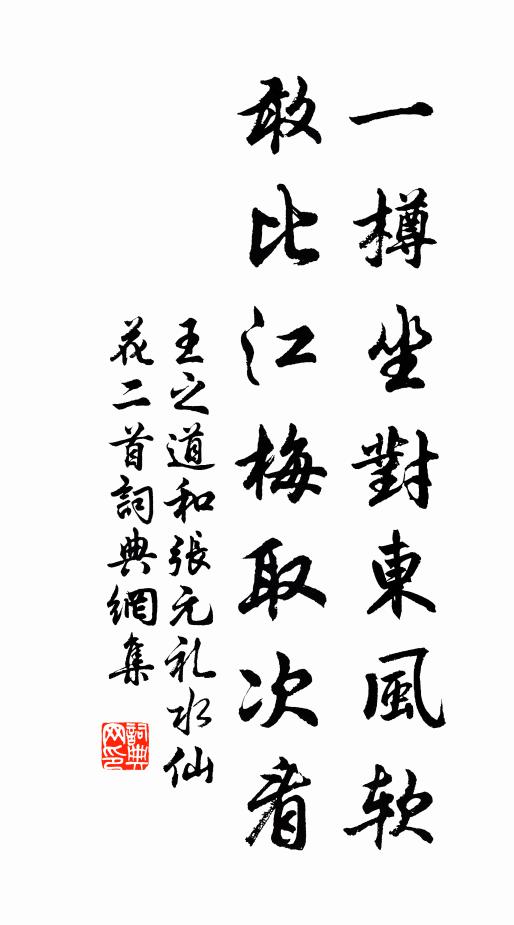 一樽坐對東風軟
敢比江梅取次看
王之道和張元礼水仙
花二首詞典網集
詞典网印